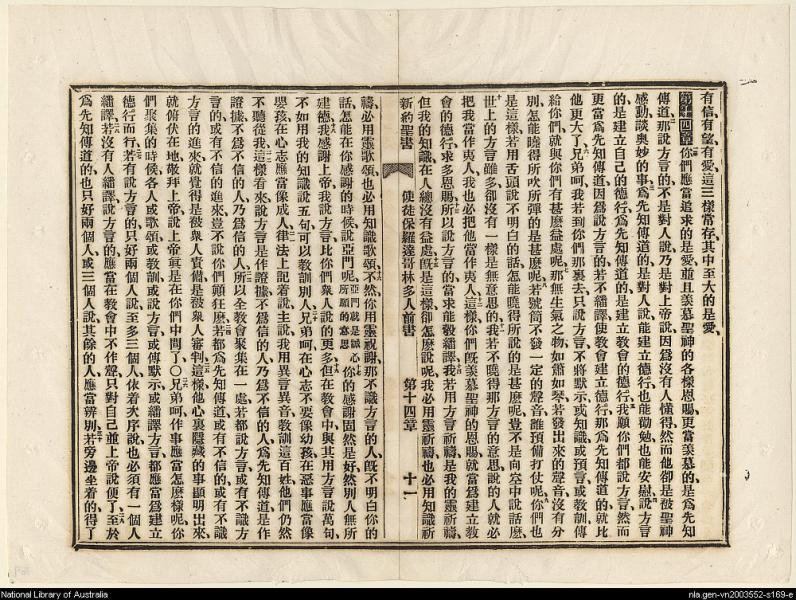 有信有望有愛、這三樣常存、其中至大的是愛、
第十四章 你們應當追求的是愛、並且羨慕聖神的各樣恩賜、更當羨慕的是爲先知
傳道、那說方言的不是對人說、乃是對上帝說、因爲沒有人懂得、然而他卻是被聖神
感動、談奧妙的事、爲先知傳道的、是對人說、能建立德行、也能勸勉、也能安慰、說方言
的、是建立自己的德行、爲先知傳道的、是建立敎會的德行、我願你們都說方言、然而
更當爲先知傳道、因爲說方言的、若不繙譯使敎會建立德行、那爲先知傳道的、就比
他更大了、兄弟呵、我若到你們那裏去、只說方言、不將默示、或知識、或預言、或敎訓傳
給你們、就與你們有甚麼益處呢、那無生氣之物、如簫如琴、若發出來的聲音、沒有分
別、怎能曉得所吹所彈的是甚麼呢、若號筒不發一定的聲音、誰預備打仗呢、你們也
是這樣、若用舌頭說不明白的話、怎能曉得所說的是甚麼呢、豈不是向空中說話麼、
世上的方言雖多、卻沒有一樣是無意思的、我若不曉得那方言的意思、說的人就必
把我當作夷人、我也必把他當作夷人、這樣、你們旣羨慕聖神的恩賜、就當爲建立敎
會的德行、求多恩賜、所以說方言的、當求能彀繙譯、我若用方言祈禱、是我的靈祈禱、
但我的知識、在人總沒有益處、旣是這樣、卻怎麼說呢、我必用靈祈禱、也必用知識祈
新約聖書 使徒保羅達哥林多人前書 第十四章 十一
禱、必用靈歌頌、也必用知識歌頌、不然、你用靈祝謝、那不識方言的人、旣不明白你的
話、怎能在你感謝的時候、說亞們呢、亞們就是誠心所願的意思 你的感謝固然是好、然別人無所
建德、我感謝上帝、我說方言、比你們衆人說的更多、但在敎會中、與其用方言說萬句、
不如用我的知識說五句、可以敎訓別人、兄弟呵、在心志不要像幼孩、在惡事應當像
嬰孩、在心志應當像成人、律法上記着說、主說、我用異言異音、敎訓這百姓、他們仍然
不聽從我、這樣看來、說方言是作證據、不爲信的人、乃爲不信的人、爲先知傳道、是作
證據、不爲不信的人、乃爲信的人、所以全敎會聚集在一處、若都說方言、或有不識方
言的、或有不信的進來、豈不說你們顚狂麼、若都爲先知傳道、或有不信的、或有不識
方言的進來、就覺得是被衆人責備、是被衆人審判、這樣他心裏隱藏的事、顯明出來、
就俯伏在地、敬拜上帝、說上帝眞是在你們中間了、○兄弟呵、作事應當怎麼樣呢、你
們聚集的時候、各人或歌頌、或敎訓、或說方言、或傳默示、或繙譯方言、都應當爲建立
德行而行、若有說方言的、只好兩個人說、至多三個人、依着次序說、也必須有一個人
繙譯、若沒有人繙譯、說方言的應當在敎會中不作聲、只對自己並上帝說便了、至於
爲先知傳道的、也只好兩個人、或三個人說、其餘的人應當辨別、若旁邊坐着的得了
National Library of Australia
nla.gen-vn2003552-s169-e